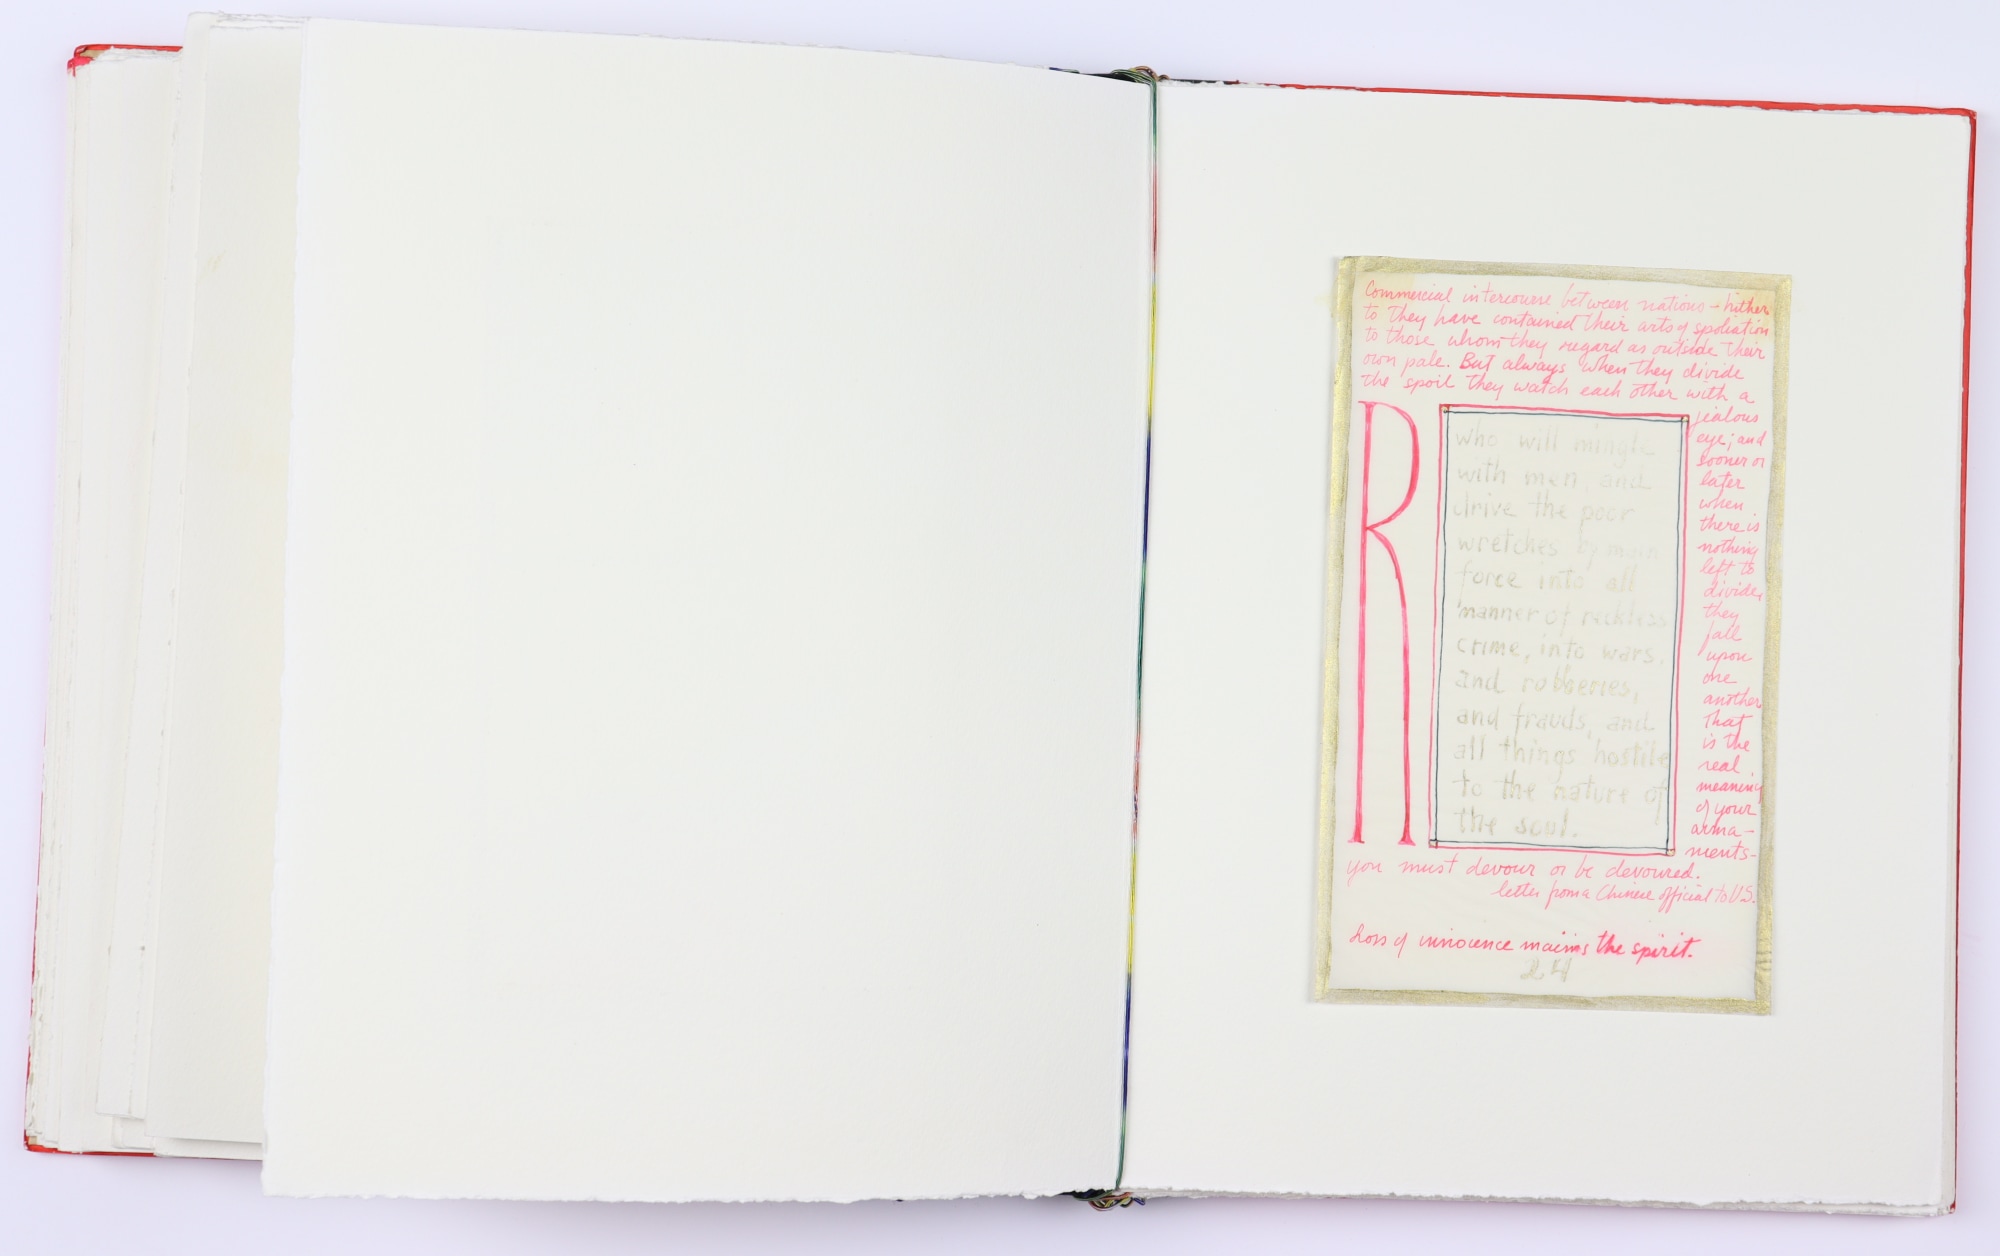 Commercial intercourse between nations – hither
to they have contained their arts of spoliation
to those whom they regard as outside their
own pale. But always when they divide
the spoil they watch each other with a
jealous
eye; and
sooner or
later
when
there is
nothing
left to
divide,
they
fall
upon
one
another
That
is the
real
meaning
of your
arma-
ments-
you must devour or be devoured.
letter from a Chinese official to U.S.
R
who will mingle
with men, and
drive the poor
wretches by main
force into all
manner of reckless
crime, into wars,
and robberies,
and frauds, and
all things hostile
to the nature of
the soul.
Loss of innocence maims the spirit.
24